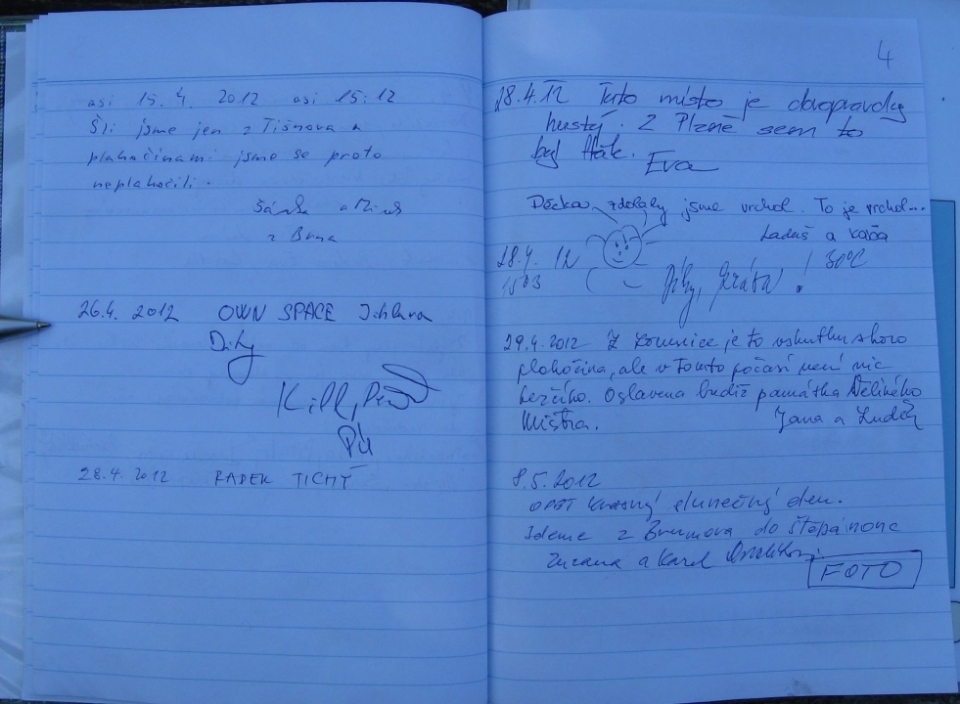 asi 15.4. 2012 asi 15:12
Šli jsme jen z Tišnova a
plahočinami jsme se proto
neplahočili.
Šárka a
z Brna
26.4. 2012 OWN SPACE Jihlava
Díky
28.4. 2012 RADEK TICHÝ
4
28.4.12 Toto místo je doopravdy
hustý. Z Plzně sem to
byl flák.
Eva
Děcka, zdolaly jsme vrchol. To je vrchol...
Laduš a Kača
28.4. 12 30°C
1503 Díky, krása!
29.4.2012 Z Lomnice je to vskutku skoro
plahočina, ale v tomto počasí není nic
těžkého. Oslavena budiž památka Velikého
Mistra. Jana a Luděk
8.5.2012
OPĚT krásný slunečný den.
Jdeme z Brumova do Štěpánovic
Zuzana a Karel
FOTO